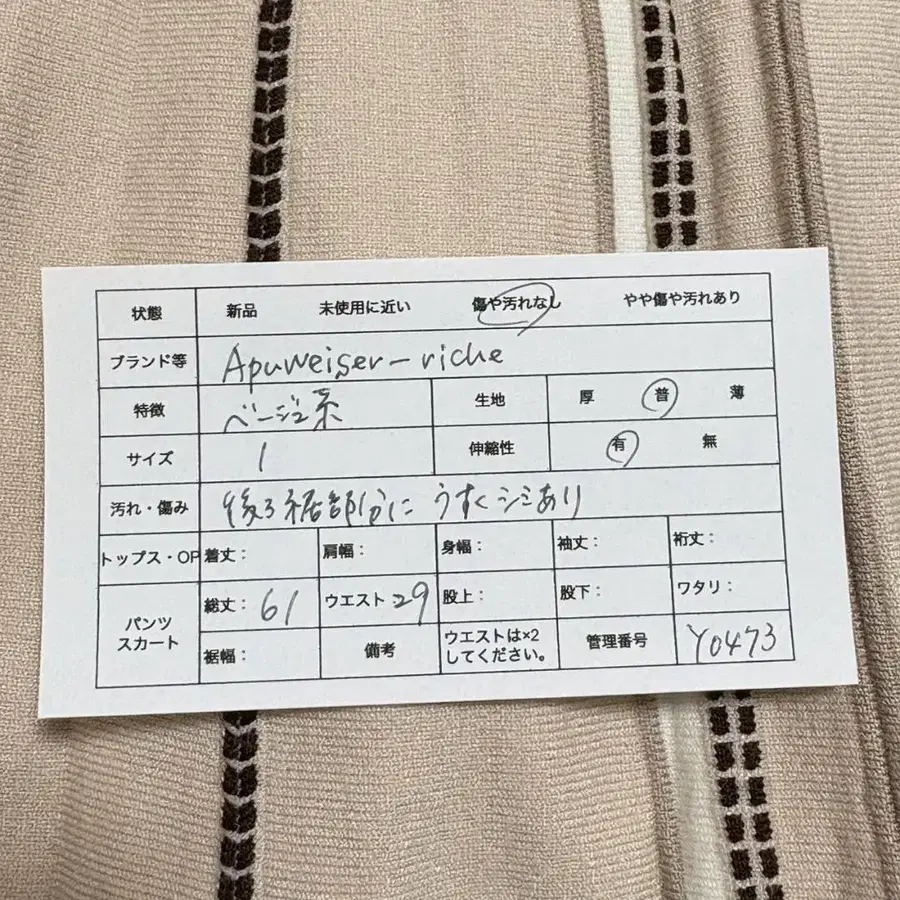 状態 新品 未使用に近い 傷や汚れなし やや傷や汚れあり
ブランド等 Apuweiser-riche
特徴 ベージュ系 生地 厚 普 薄
サイズ 1 伸縮性 有 無
汚れ・傷み 後ろ裾部分に うすくシミあり
トップス・OP 着丈: 肩幅: 身幅: 袖丈: 裄丈:
パンツ
スカート
総丈: 61 ウエスト 29 股上: 股下: ワタリ:
裾幅: 備考 ウエストは×2
してください。 管理番号 Y0473